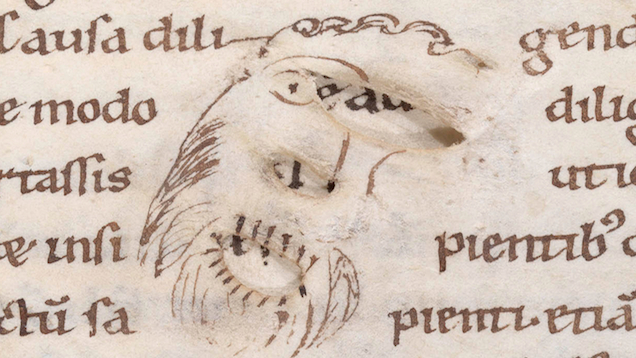 Causa dili gend
e modo dilig
rtassis utio
æ insi pientib⁹ c
ctū sa pienti. etiā